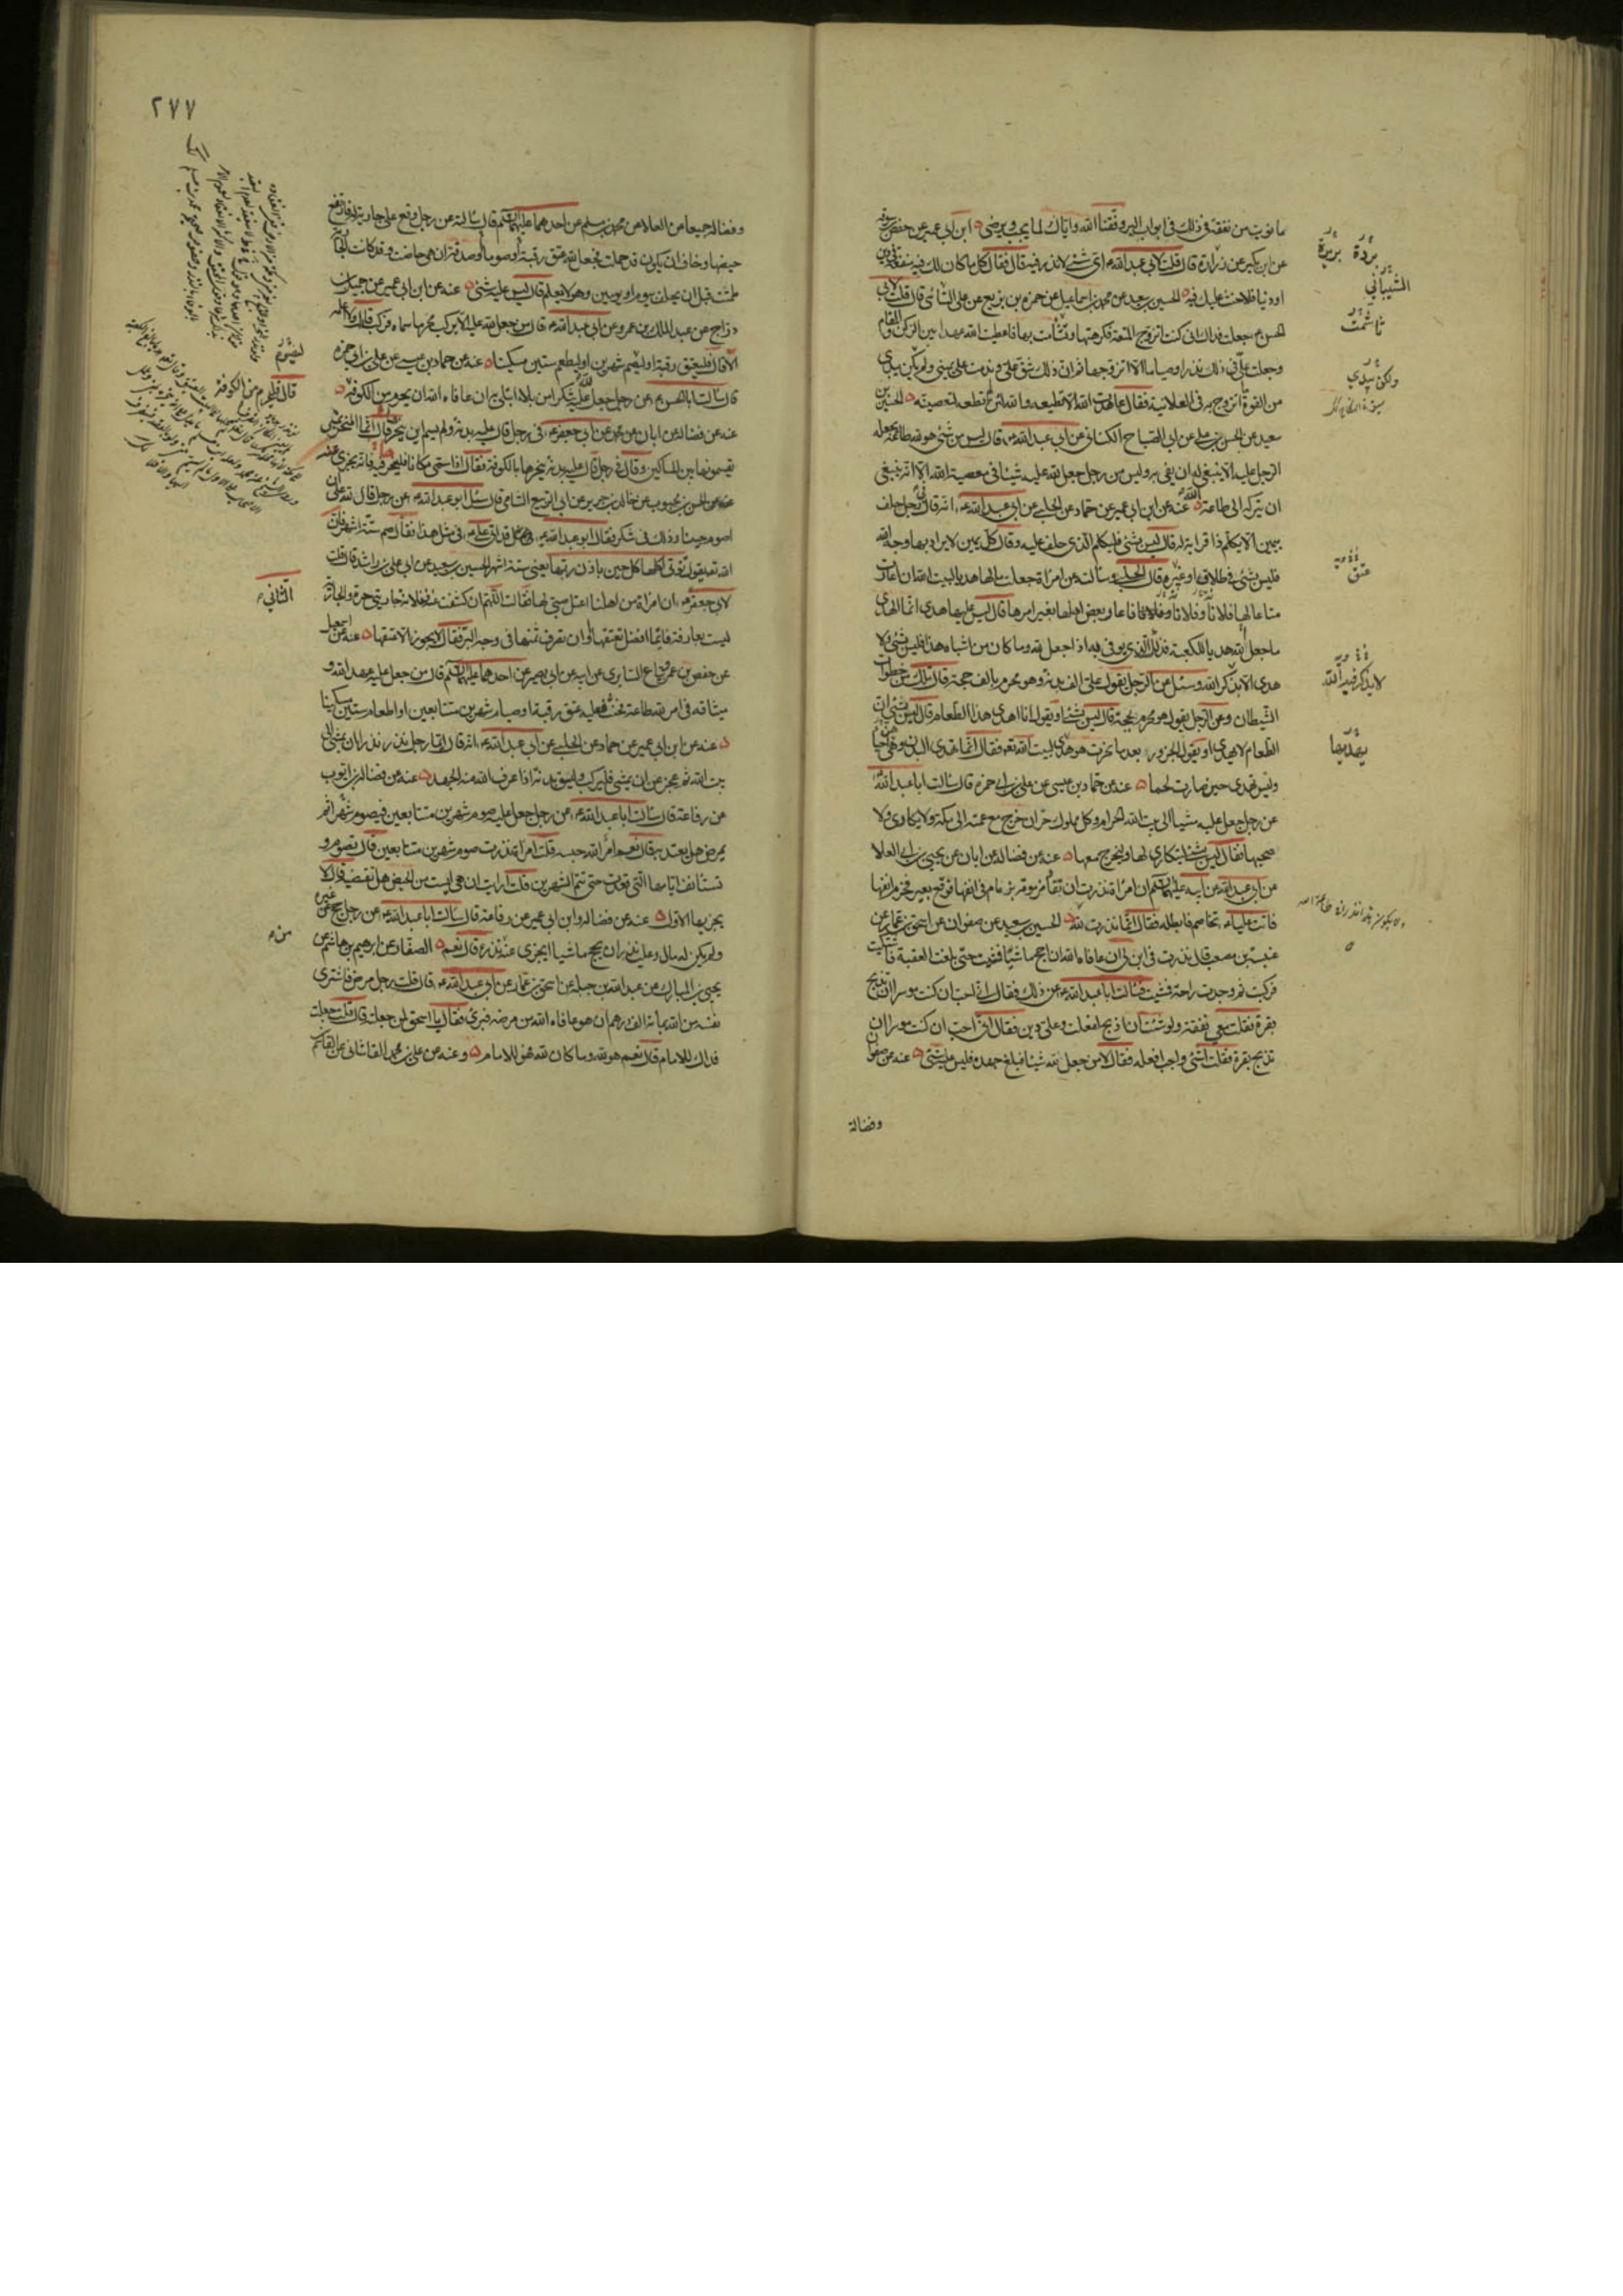 ما نويت من نفقة في ذلك في ابواب البر وفقنا الله واياك لما يحب ويرضى ابن ابي عمير عن حفص بن سوقه
عن ابن بكير عن زرارة قال قلت لابي عبد الله ع اي شيء لا نذر فيه قال فقال كل ما كان لك فيه منفعة في دين
او دنيا فلا حنث عليك فيه الحسين بن سعيد عن محمد بن اسماعيل عن حمزه بن بزيع عن علي السائي قال قلت لابي
الحسن ع جعلت فداك اني كنت اتزوج المتعة فكرهتها وتشأمت بها فاعطيت الله عهدا بين الركن والمقام
وجعلت علي في ذلك نذرا وصياما الا اتزوجها ثم ان ذلك شق علي وندمت على يميني ولم يكن بيدي
من القوة ما اتزوج به في العلانية فقال عاهدت الله الا تطيعه والله لئن لم تطعه لتعصينه الحسين بن
سعيد عن الحسن بن علي عن ابي الصباح الكناني عن ابي عبد الله ع قال ليس من شيء هو لله طاعة يجعله
الرجل عليه الا ينبغي له ان يفي به وليس من رجل جعل لله عليه شيئا في معصية الله الا انه ينبغي
ان يتركه الى طاعة الله عنه عن ابن ابي عمير عن حماد عن الحلبي عن ابي عبد الله ع انه قال في رجل حلف
بيمين الا يكلم ذا قرابة له قال ليس بشيء فليكلم الذي حلف عليه وقال كل يمين لا يراد بها وجه الله
فليس بشيء في طلاق او غيره قال الحلبي وسألته عن امرأة جعلت مالها هديا لبيت الله ان اعارت
متاعا لها فلانا وفلانا وفلانا فاعار بعض اهلها بغير امرها قال ليس عليها هدي انما الهدي
ما جعل لله هديا للكعبة فذلك الذي يوفى به اذا جعل لله وما كان من اشباه هذا فليس بشيء ولا
هدي الا بذكر الله وسئل عن الرجل يقول علي الف بدنة وهو محرم بالف حجة قال تلك من خطوات
الشيطان وعن الرجل يقول هو محرم بحجة قال ليس بشيء او يقول انا اهدي هذا الطعام قال ليس بشيء ان
الطعام لا يهدى او يقول لجزور بعد ما نحرت هو هدي لبيت الله تعه فقال انما تهدى البدن وهي احياء
وليس تهدى حين صارت لحما عنه عن حماد بن عيسى عن علي بن ابي حمزه قال سالت ابا عبد الله ع
عن رجل جعل عليه شيا الى بيت الله الحرام وكل مملوك حر ان خرج مع عمته الى مكة ولا يكاري ولا
صحبها فقال ليس بشيء ليتكاري لها وليخرج معها عنه عن فضاله عن ابان عن يحيى بن ابي العلا
عن ابي عبد الله عن ابيه عليهما السلم ان امرأة نذرت ان تقاد مزمومة بزمام في انفها فوقع بعير فخرم انفها
فاتت عليا ع تخاصم فابطله فقال انما نذرت لله الحسين بن سعيد عن صفوان عن اسحق بن عمار عن
عنبسة بن مصعب قال نذرت في ابن لي ان عافاه الله ان احج ماشيا فمشيت حتى بلغت العقبة فاشتكيت
فركبت ثم وجدت راحة فمشيت فسالت ابا عبد الله ع عن ذلك فقال اني احب ان كنت موسرا ان تذبح
بقرة فقلت معي نفقة ولو شئت ان اذبح لفعلت وعلي دين فقال اني احب ان كنت موسرا ان
تذبح بقرة فقلت اشيء واجب افعله فقال لا من جعل لله شيئا فبلغ جهده فليس عليه شيء عنه عن صفوان
وفضالة
بردة بريدة
الشيباني
تاثمت
ولكن بيدي
عتق
لا يذكر فيه الله
يهديها
٢٧٧
وفضاله جميعا عن العلا عن محمد بن مسلم عن احدهما عليهما السلم قال سالته عن رجل وقع على جارية له فارتفع
حيضها وخاف ان يكون قد حملت فجعل لله عتق رقبة او صوما او صدقة ان هي حاضت وقد كانت الجارية
طمثت قبل ان يحلف بيوم او يومين وهو لا يعلم قال ليس عليه شيء عنه عن ابن ابي عمير عن جميل بن
دراج عن عبد الملك بن عمرو عن ابي عبد الله ع قال من جعل لله عليه الا يركب محرما سماه فركبه قال ولا اعلمه
الا قال فليعتق رقبة او ليصم شهرين او ليطعم ستين مسكينا عنه عن حماد بن عيسى عن علي بن ابي حمزه
قال سالت ابا الحسن ع عن رجل جعل لله عليه شكرا من بلاء ابتلي به ان عافاه الله ان يحرم من الكوفة
عنه عن فضاله عن ابان عن محمد عن ابي جعفر ع في رجل قال عليه بدنة ولم يسم اين ينحر قال انما المنحر بمنى
يقسمونها بين المساكين وقال في رجل قال عليه بدنة ينحرها بالكوفة فقال اذا سمى مكانا فلينحر فيه فانه يجزي عنه
عنه عن الحسن بن محبوب عن خالد بن جرير عن ابي الربيع الشامي قال سئل ابو عبد الله ع عن رجل قال لله علي ان
اصوم حينا وذلك في شكر فقال ابو عبد الله ع قد اتي علي ع في مثل هذا فقال صم ستة اشهر فان
الله تعه يقول تؤتي اكلها كل حين باذن ربها يعني ستة اشهر الحسين بن سعيد عن ابي علي بن راشد قال قلت
لابي جعفر ع ان امرأة من اهلنا اعتل صبي لها فقالت اللهم ان كشفت عنه ففلانة جاريتي حرة والجارية
ليست بعارفة فايما افضل تعتقها او ان تصرف ثمنها في وجه البر فقال لا يجوز الا عتقها عنه عن اسمعيل
عن حفص بن عمر بياع السابري عن ابيه عن ابي بصير عن احدهما عليهما السلم قال من جعل عليه عهد الله و
ميثاقه في امر لله طاعة فحنث فعليه عتق رقبة او صيام شهرين متتابعين او اطعام ستين مسكينا
عنه عن ابن ابي عمير عن حماد عن الحلبي عن ابي عبد الله ع انه قال ايما رجل نذر نذرا ان يمشي الى
بيت الله ثم عجز عن ان يمشي فليركب وليسق بدنة اذا عرف الله منه الجهد عنه عن فضالة بن ايوب
عن رفاعة قال سالت ابا عبد الله ع عن رجل جعل عليه صوم شهرين متتابعين فيصوم شهرا ثم
يمرض هل يعتد به قال نعم امر الله حبسه قلت امرأة نذرت صوم شهرين متتابعين قال تصوم و
تستانف ايامها التي قعدت حتى تتم الشهرين قلت ارايت ان هي ايست من الحيض هل تقضيه قال لا
يجزيها الاول عنه عن فضاله وابن ابي عمير عن رفاعة قال سالت ابا عبد الله ع عن رجل حج عن غيره
ولم يكن له مال وعليه نذر ان يحج ماشيا ايجزي عنه نذره قال نعم الصفار عن ابرهيم بن هاشم عن
يحيى بن المبارك عن عبد الله بن جبله عن اسحق بن عمار عن ابي عبد الله ع قال قلت رجل مرض فاشترى
نفسه من الله بمائة الف درهم ان هو عافاه الله من مرضه فبرئ فقال يا اسحق لمن جعلته قال قلت جعلت
فداك للامام قال نعم هو لله وما كان لله فهو للامام وعنه عن علي بن محمد القاشاني عن القاسم
قال فليحرم من الكوفة
الثاني ع
من ع